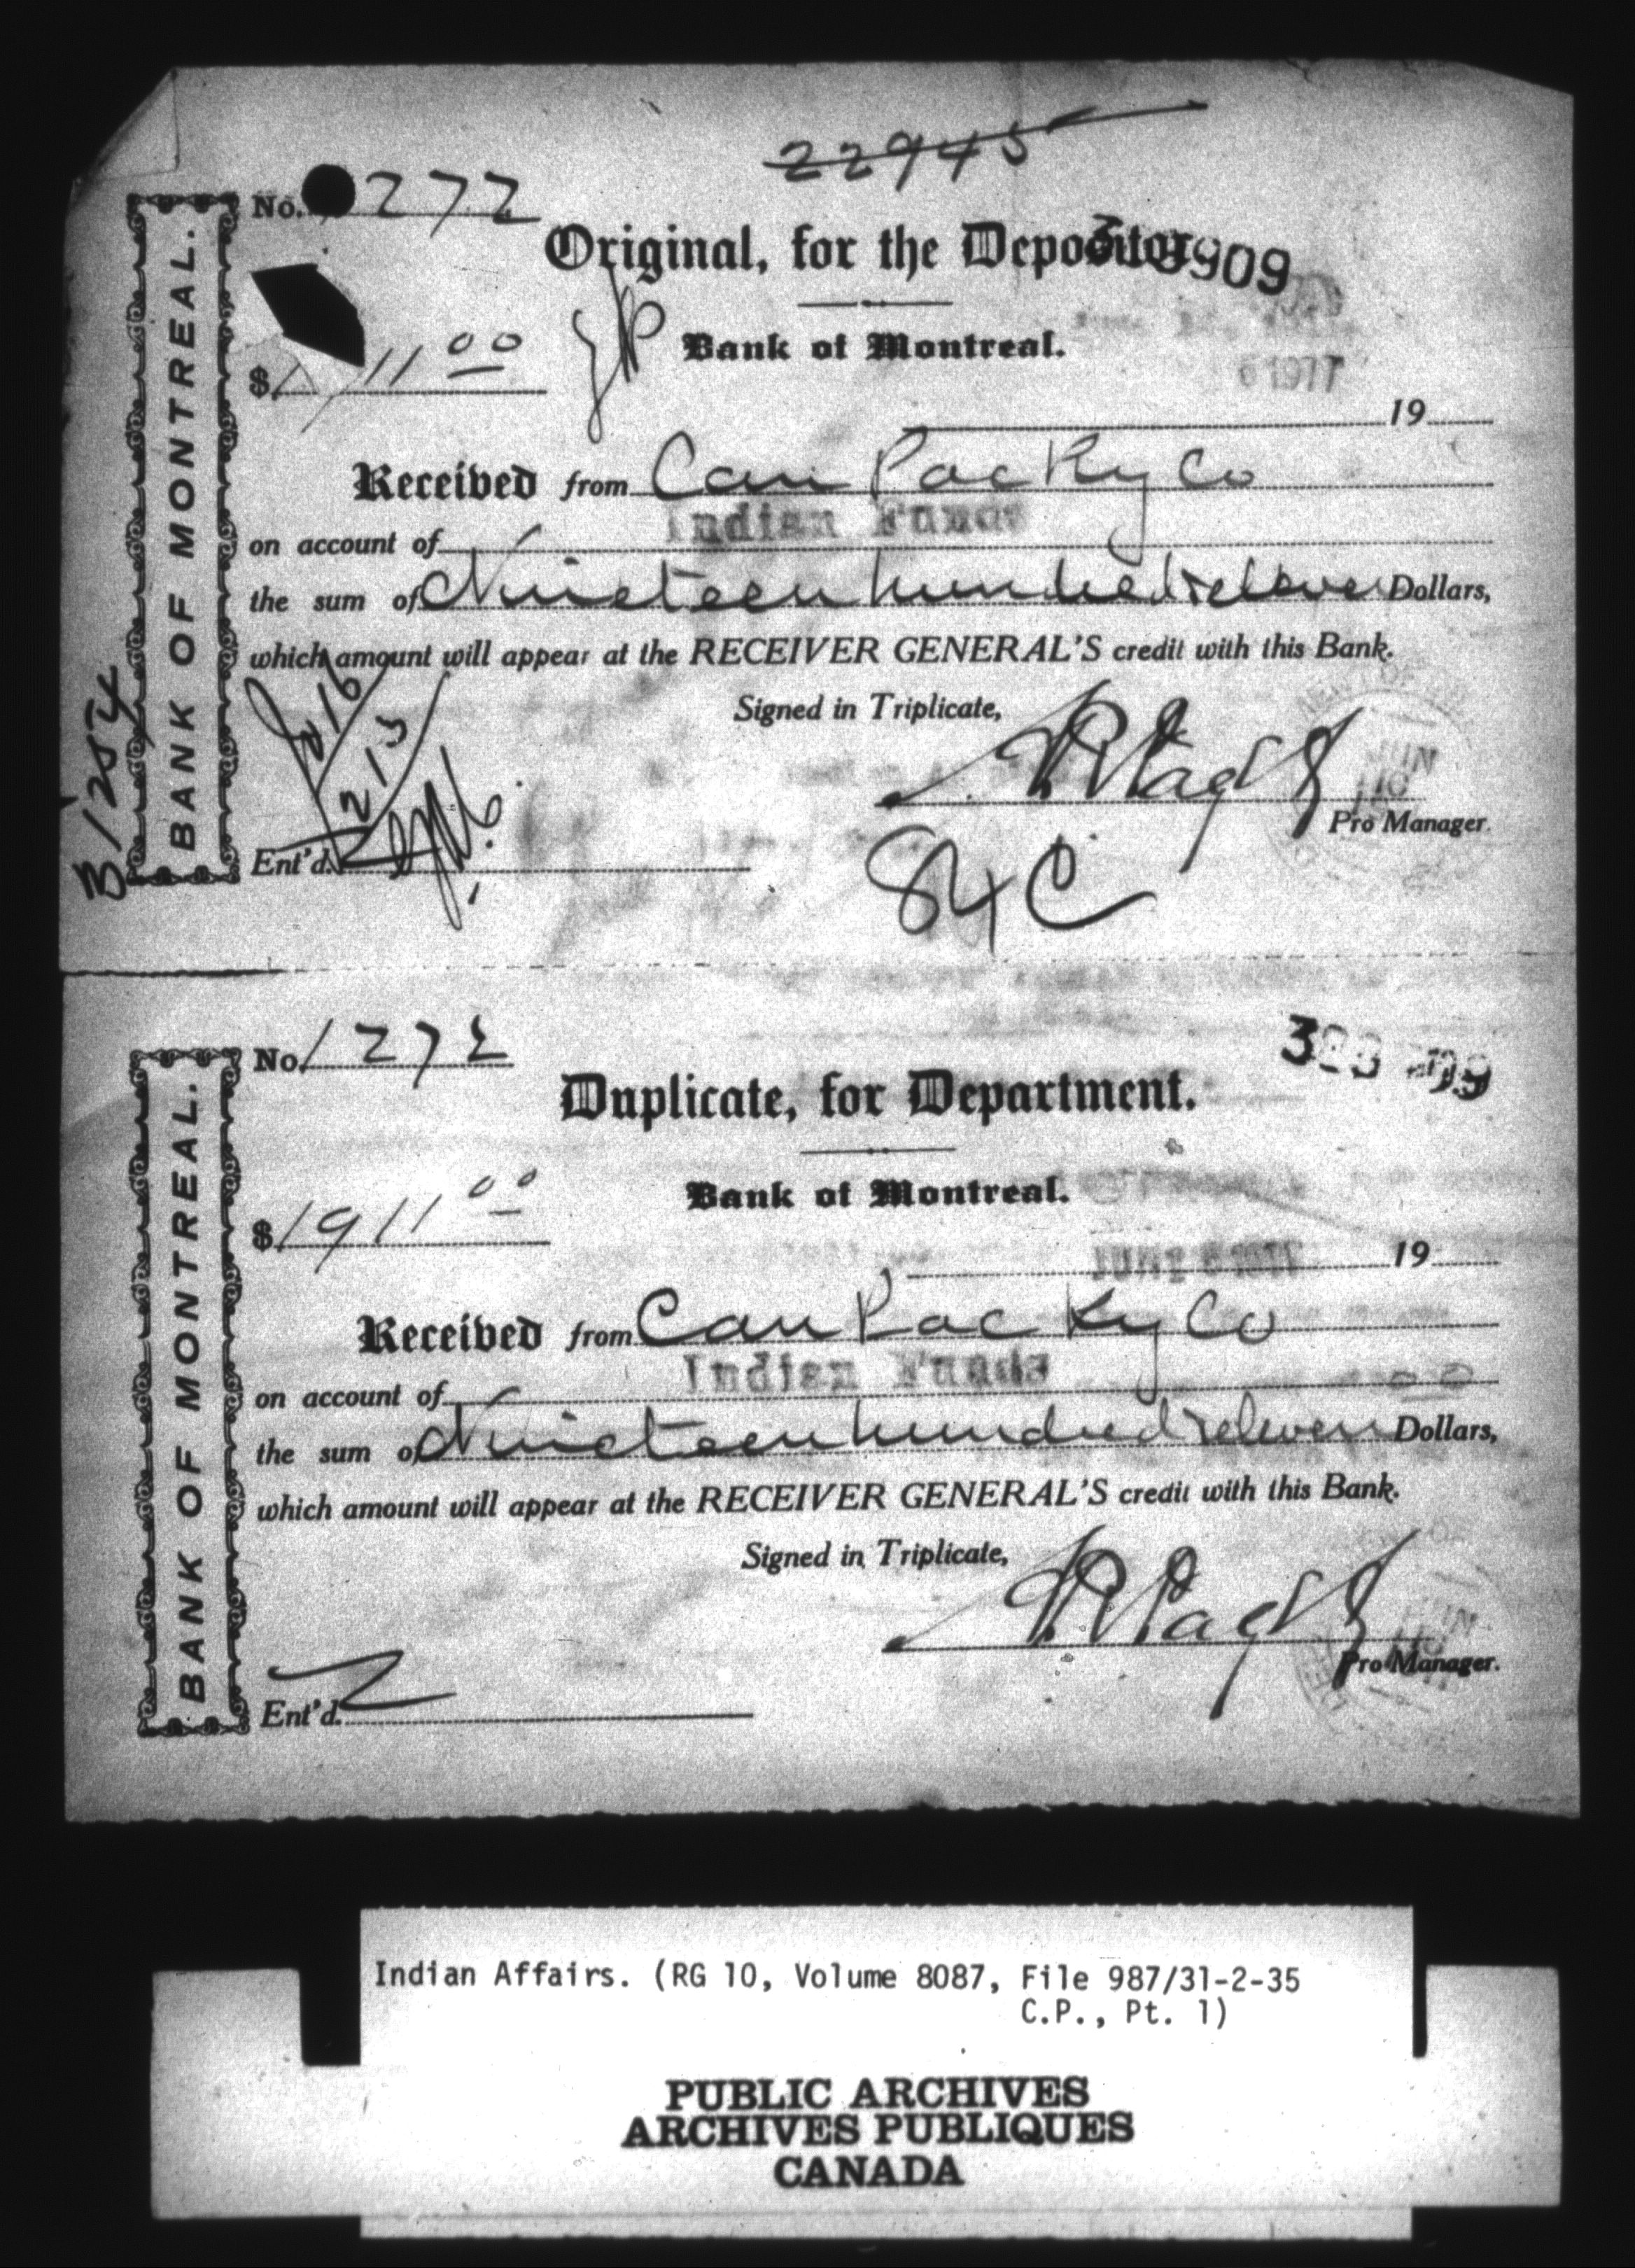 22945
No. 272
Original, for the Depositor.
Bank of Montreal.
$ 1 11 00
19
Received from Can Pac Ry Co
on account of Indian Funds
the sum of Nineteen hundred & eleven Dollars,
which amount will appear at the RECEIVER GENERAL'S credit with this Bank.
Signed in Triplicate,
Pro Manager.
Ent'd.
84 C
BANK OF MONTREAL.
B1254
No. 1272
Duplicate, for Department.
Bank of Montreal.
$ 1911 00
19
Received from Can Pac Ry Co
on account of Indian Funds
the sum of Nineteen hundred & eleven Dollars,
which amount will appear at the RECEIVER GENERAL'S credit with this Bank.
Signed in Triplicate,
Pro Manager.
Ent'd.
BANK OF MONTREAL.
Indian Affairs. (RG 10, Volume 8087, File 987/31-2-35
C.P., Pt. 1)
PUBLIC ARCHIVES
ARCHIVES PUBLIQUES
CANADA